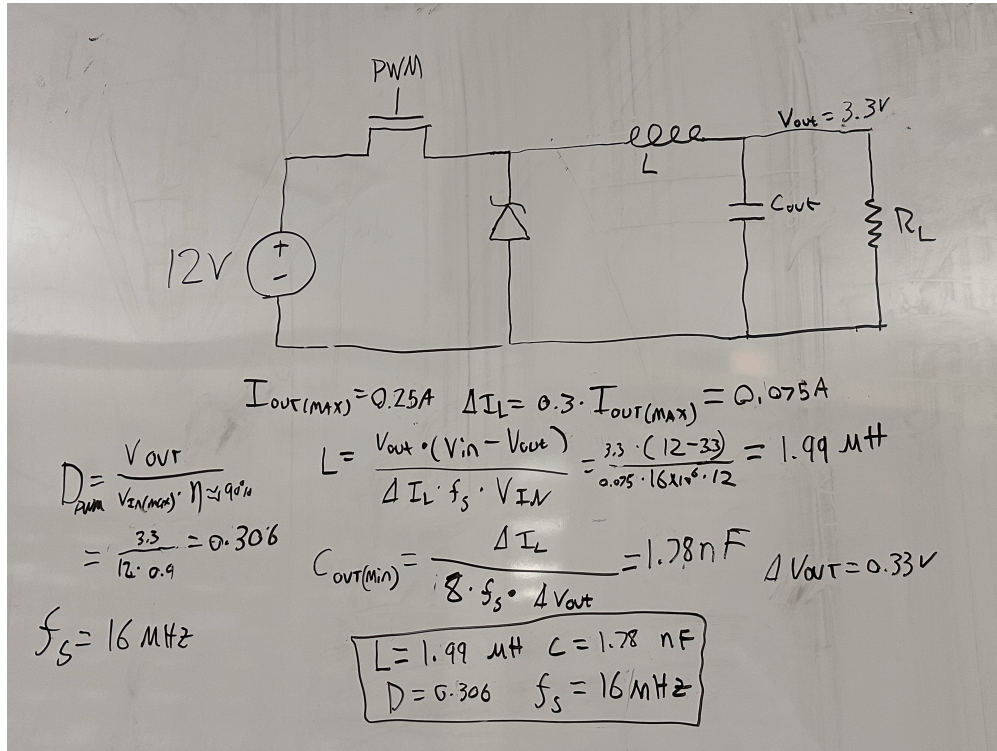 PWM
Vout = 3.3V
L
Cout
RL
12V
+
-
IOUT(MAX) = 0.25A ΔIL = 0.3 · IOUT(MAX) = 0.075A
DPWM = VOUT / VIN(MAX) · η ≈ 90%
= 3.3 / 12 · 0.9 = 0.306
fs = 16 MHz
L = Vout · (Vin - Vout) / ΔIL · fs · VIN = 3.3 · (12 - 33) / 0.075 · 16x10^6 · 12 = 1.99 μH
COUT(Min) = ΔIL / 8 · fs · ΔVout = 1.78 nF ΔVOUT = 0.33V
L = 1.99 μH C = 1.78 nF
D = 0.306 fs = 16 MHz